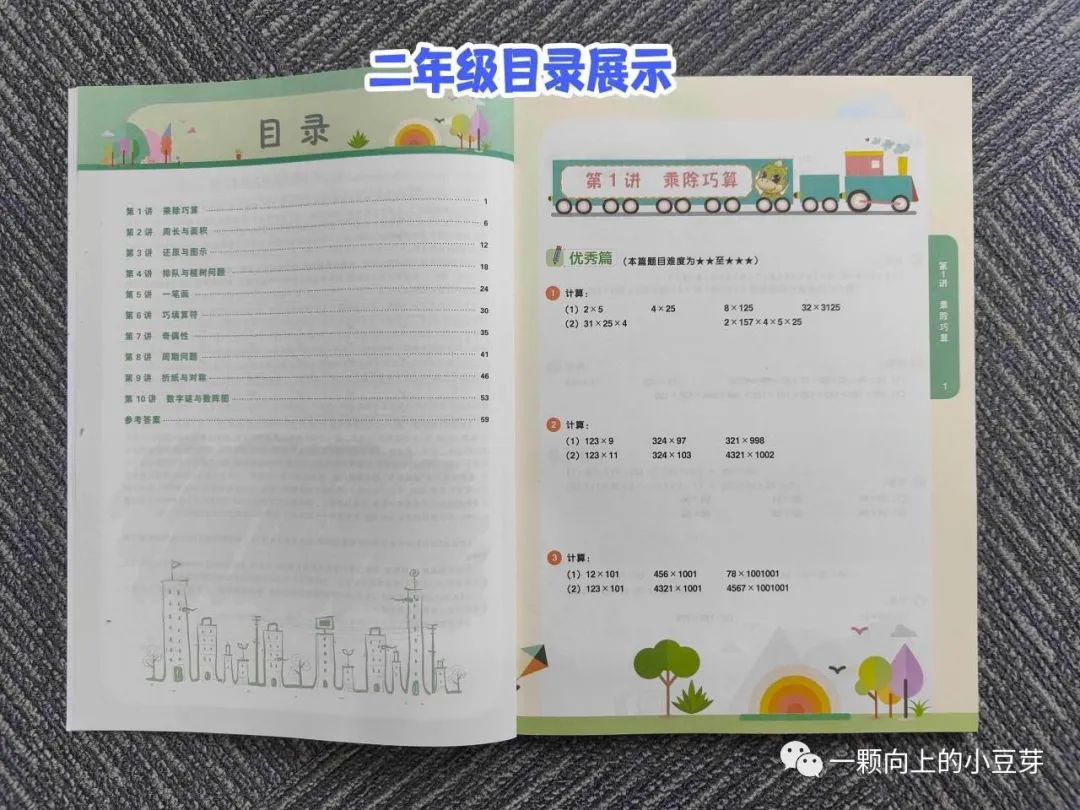 二年级目录展示
目录
第1讲 乘除巧算 1
第2讲 周长与面积 6
第3讲 还原与图示 12
第4讲 排队与植树问题 18
第5讲 一笔画 24
第6讲 巧填算符 30
第7讲 奇偶性 35
第8讲 周期问题 41
第9讲 折纸与对称 46
第10讲 数字谜与数阵图 53
参考答案 59
第1讲 乘除巧算
优秀篇 (本篇题目难度为★★至★★★)
1 计算:
(1) 2×5 4×25 8×125 32×3125
(2) 31×25×4 2×157×4×5×25
2 计算:
(1) 123×9 324×97 321×998
(2) 123×11 324×103 4321×1002
3 计算:
(1) 12×101 456×1001 78×1001001
(2) 123×101 4321×1001 4567×1001001
第1讲 乘除巧算
1
一颗向上的小豆芽